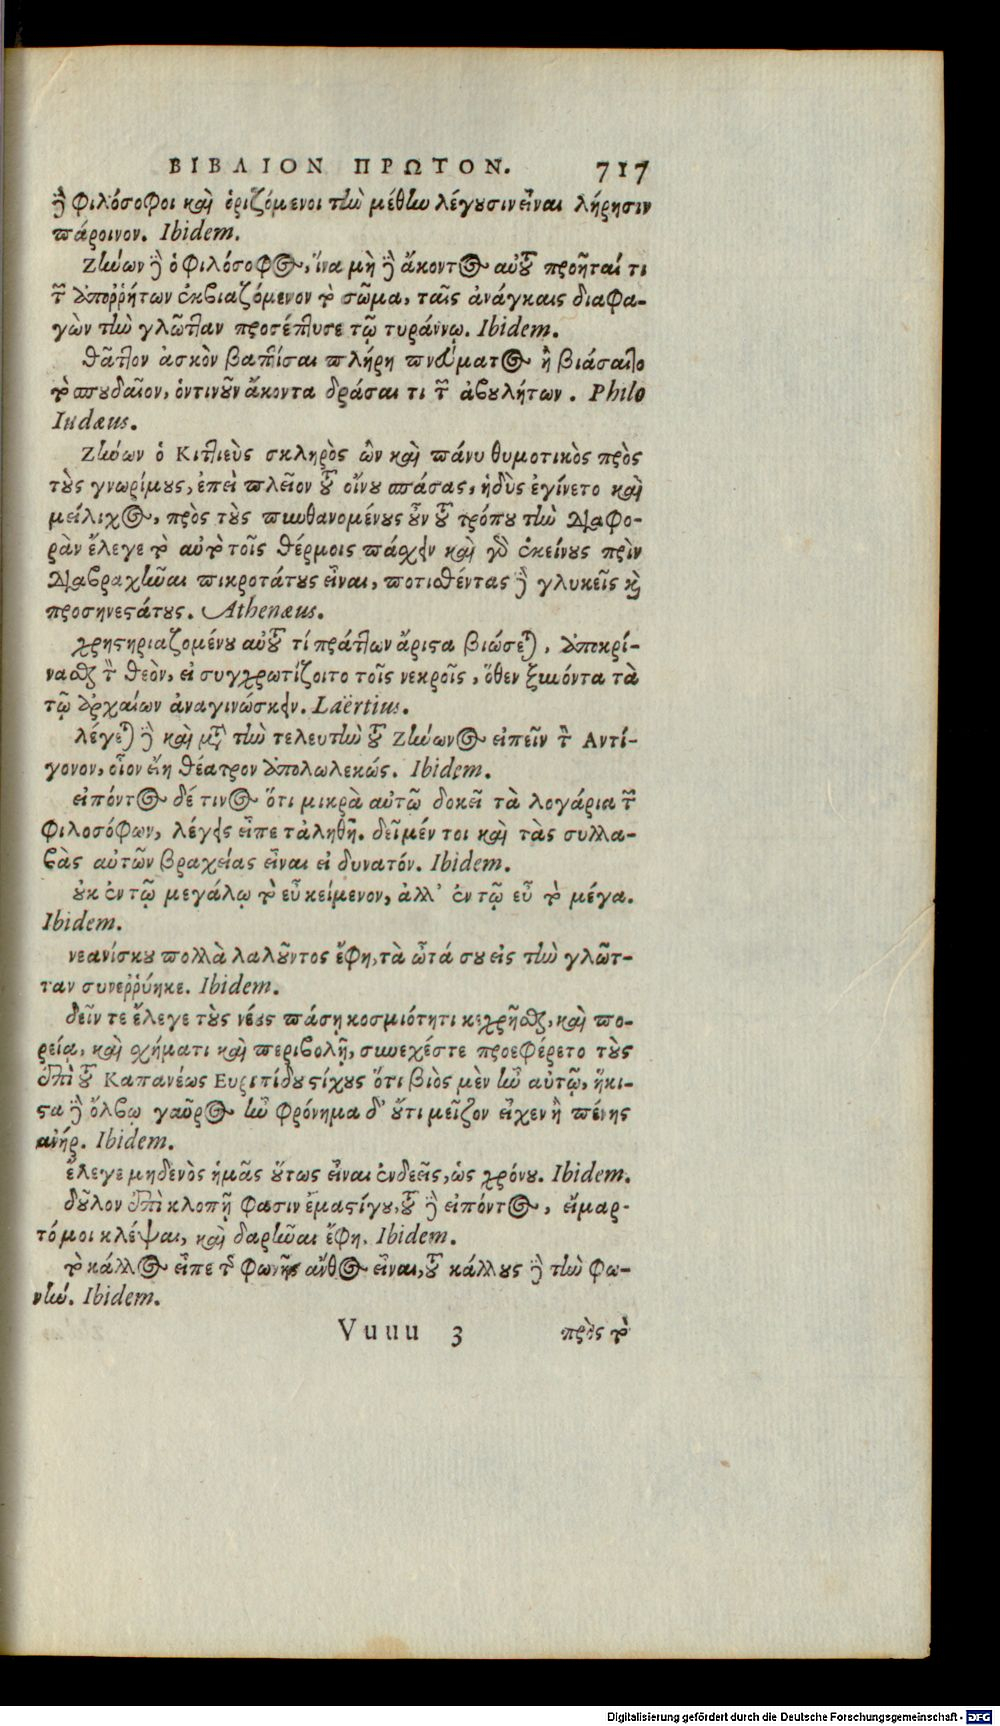 ΒΙΒΛΙΟΝ ΠΡΩΤΟΝ. 717
ἢ φιλόσοφοι καὶ ὁριζόμενοι τὴν μέθην λέγουσιν εἶναι λήρησιν
πάροινον. Ibidem.
Ζήνων δὲ ὁ φιλόσοφος, ἵνα μὴ δὲ ἄκοντος αὐτοῦ προῆταί τι
τῶν ἀπορρήτων ἐκβιαζόμενον τὸ σῶμα, ταῖς ἀνάγκαις διαφα-
γὼν τὴν γλῶτταν προσέπτυσε τῷ τυράννῳ. Ibidem.
θᾶττον ἀσκὸν βαπτίσαι πλήρη πνεύματος ἢ βιάσαιτο
τὸ σπουδαῖον, ὁντινοῦν ἄκοντα δρᾶσαι τι τῶν ἀβουλήτων. Philo
Iudæus.
Ζήνων ὁ Κιτιεὺς σκληρὸς ὢν καὶ πάνυ θυμοτικὸς πρὸς
τοὺς γνωρίμους, ἐπεὶ πλεῖον τοῦ οἴνου σπάσας, ἡδὺς ἐγίνετο καὶ
μείλιχος, πρὸς τοὺς πυνθανομένους οὖν τοῦ τρόπου τὴν διαφο-
ρὰν ἔλεγε τὸ αὐτὸ τοῖς θέρμοις πάσχειν καὶ γὰρ ἐκείνους πρὶν
διαβραχῆναι πικροτάτους εἶναι, ποτισθέντας δὲ γλυκεῖς καὶ
προσηνεστάτους. Athenæus.
χρηστηριαζομένου αὐτοῦ τί πράττων ἄριστα βιώσεται, ἀποκρί-
νασθαι τὸν θεὸν, εἰ συγχρωτίζοιτο τοῖς νεκροῖς, ὅθεν ξυνιόντα τὰ
τῶν ἀρχαίων ἀναγινώσκειν. Laërtius.
λέγεται δὲ καὶ μετὰ τὴν τελευτὴν τοῦ Ζήνωνος εἰπεῖν τὸν Αντί-
γονον, οἷον εἴη θέατρον ἀπολωλεκώς. Ibidem.
εἰπόντος δέ τινος ὅτι μικρὰ αὐτῷ δοκεῖ τὰ λογάρια τῶν
φιλοσόφων, λέγεις εἶπε τἀληθῆ. δεῖ μέν τοι καὶ τὰς συλλα-
βὰς αὐτῶν βραχείας εἶναι εἰ δυνατόν. Ibidem.
οὐκ ἐν τῷ μεγάλῳ τὸ εὖ κείμενον, ἀλλ' ἐν τῷ εὖ τὸ μέγα.
Ibidem.
νεανίσκου πολλὰ λαλοῦντος ἔφη, τὰ ὦτά σου εἰς τὴν γλῶτ-
ταν συνερρύηκε. Ibidem.
δεῖν τε ἔλεγε τοὺς νέους πάσῃ κοσμιότητι κεχρῆσθαι, καὶ πο-
ρείᾳ, καὶ σχήματι καὶ περιβολῇ, συνεχές τε προεφέρετο τοὺς
ἐπὶ τοῦ Καπανέως Ευριπίδου στίχους ὅτι βιὸς μὲν ἦν αὐτῷ, ἥκι-
στα δὲ ὄλβῳ γαῦρος ἦν φρόνημα δ' οὔτι μεῖζον εἶχεν ἢ πένης
ανήρ. Ibidem.
ἔλεγε μηδενὸς ἡμᾶς οὕτως εἶναι ἐνδεεῖς, ὡς χρόνου. Ibidem.
δοῦλον ἐπὶ κλοπῇ φασιν ἐμαστίγου, τοῦ δὲ εἰπόντος, εἵμαρ-
τό μοι κλέψαι, καὶ δαρῆναι ἔφη. Ibidem.
τὸ κάλλος εἶπε τῆς φωνῆς ἄνθος εἶναι, τοῦ κάλλους δὲ τὴν φω-
νήν. Ibidem.
Vuuu 3 πρὸς τὸ
Digitalisierung gefördert durch die Deutsche Forschungsgemeinschaft - DFG